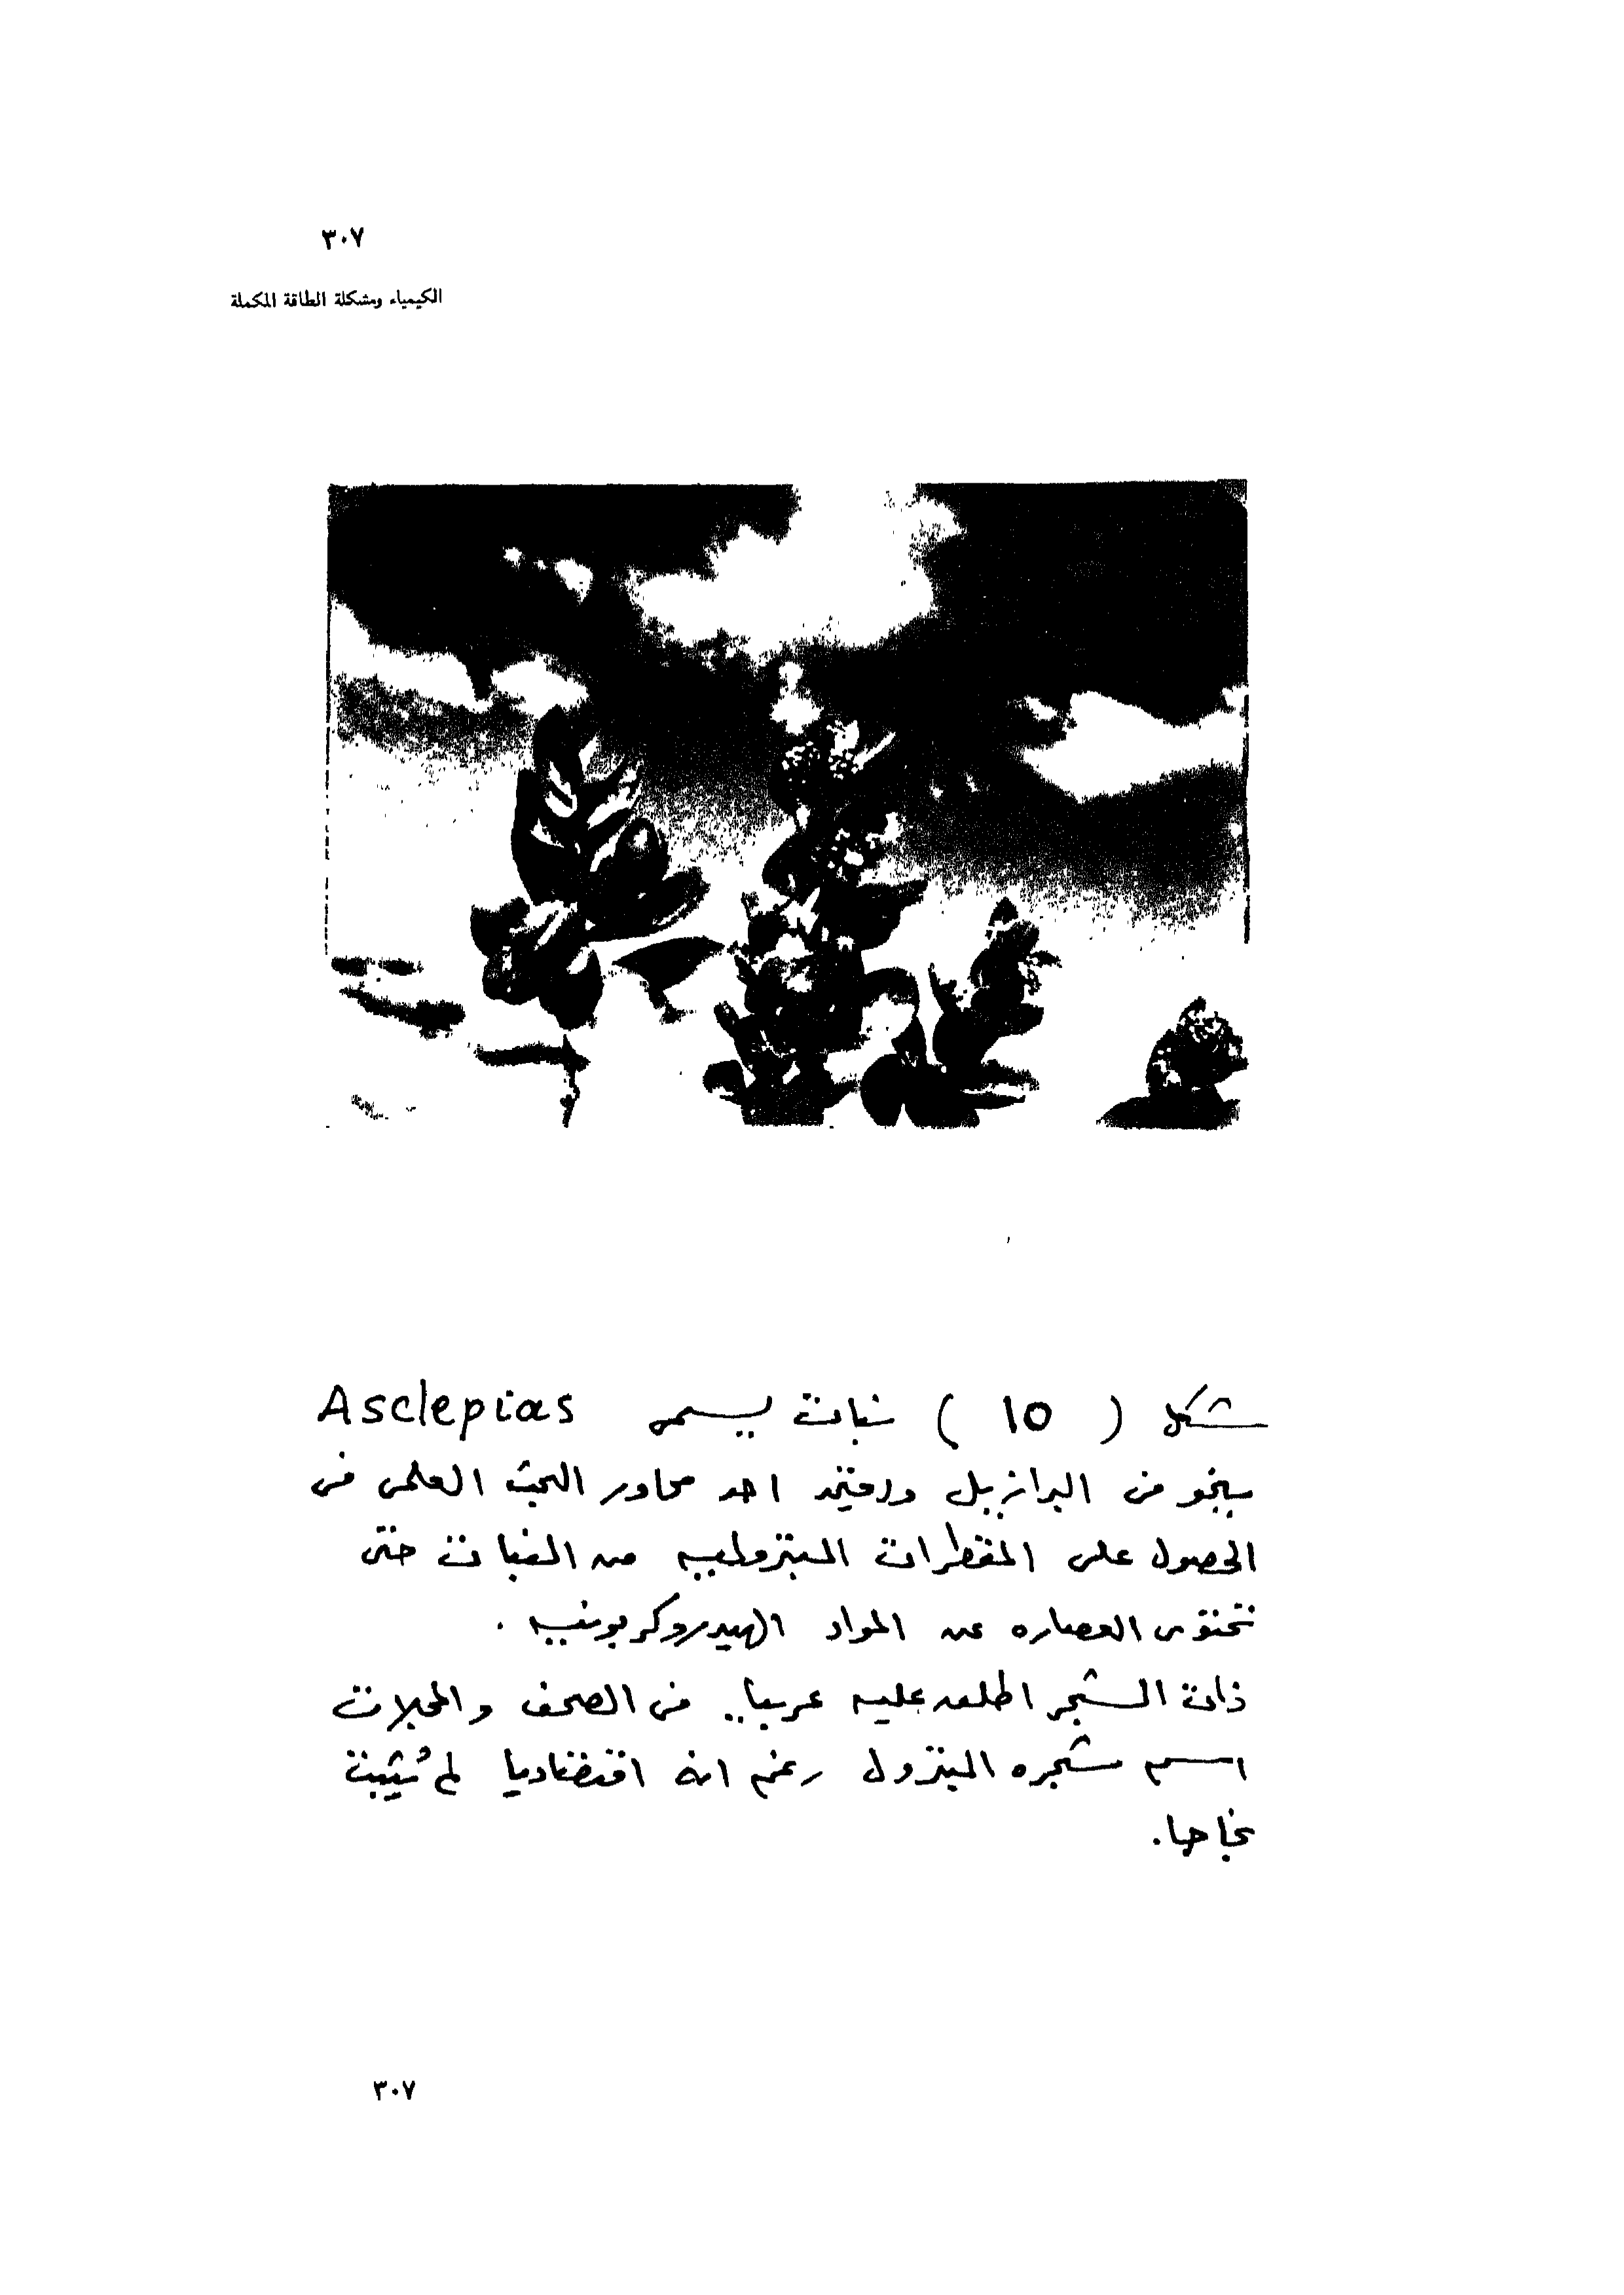 ٣٠٧
الكيمياء ومشكلة الطاقة المكملة
شكل ( ١٥ ) نبات يسمى Asclepias
ينمو فى البرازيل احد محاور البحث العلمى فى
الحصول على المقطرات البتروليه من النبات حتى
تحتوى العصاره عن المواد الهيدروكربونيه .
ذات الشجر اطلق عليه عربيا .. فى الصحف والمجلات
اسم شجره البترول رغم انه اقتصاديا لم يُثبت
نجاحا .
٣٠٧